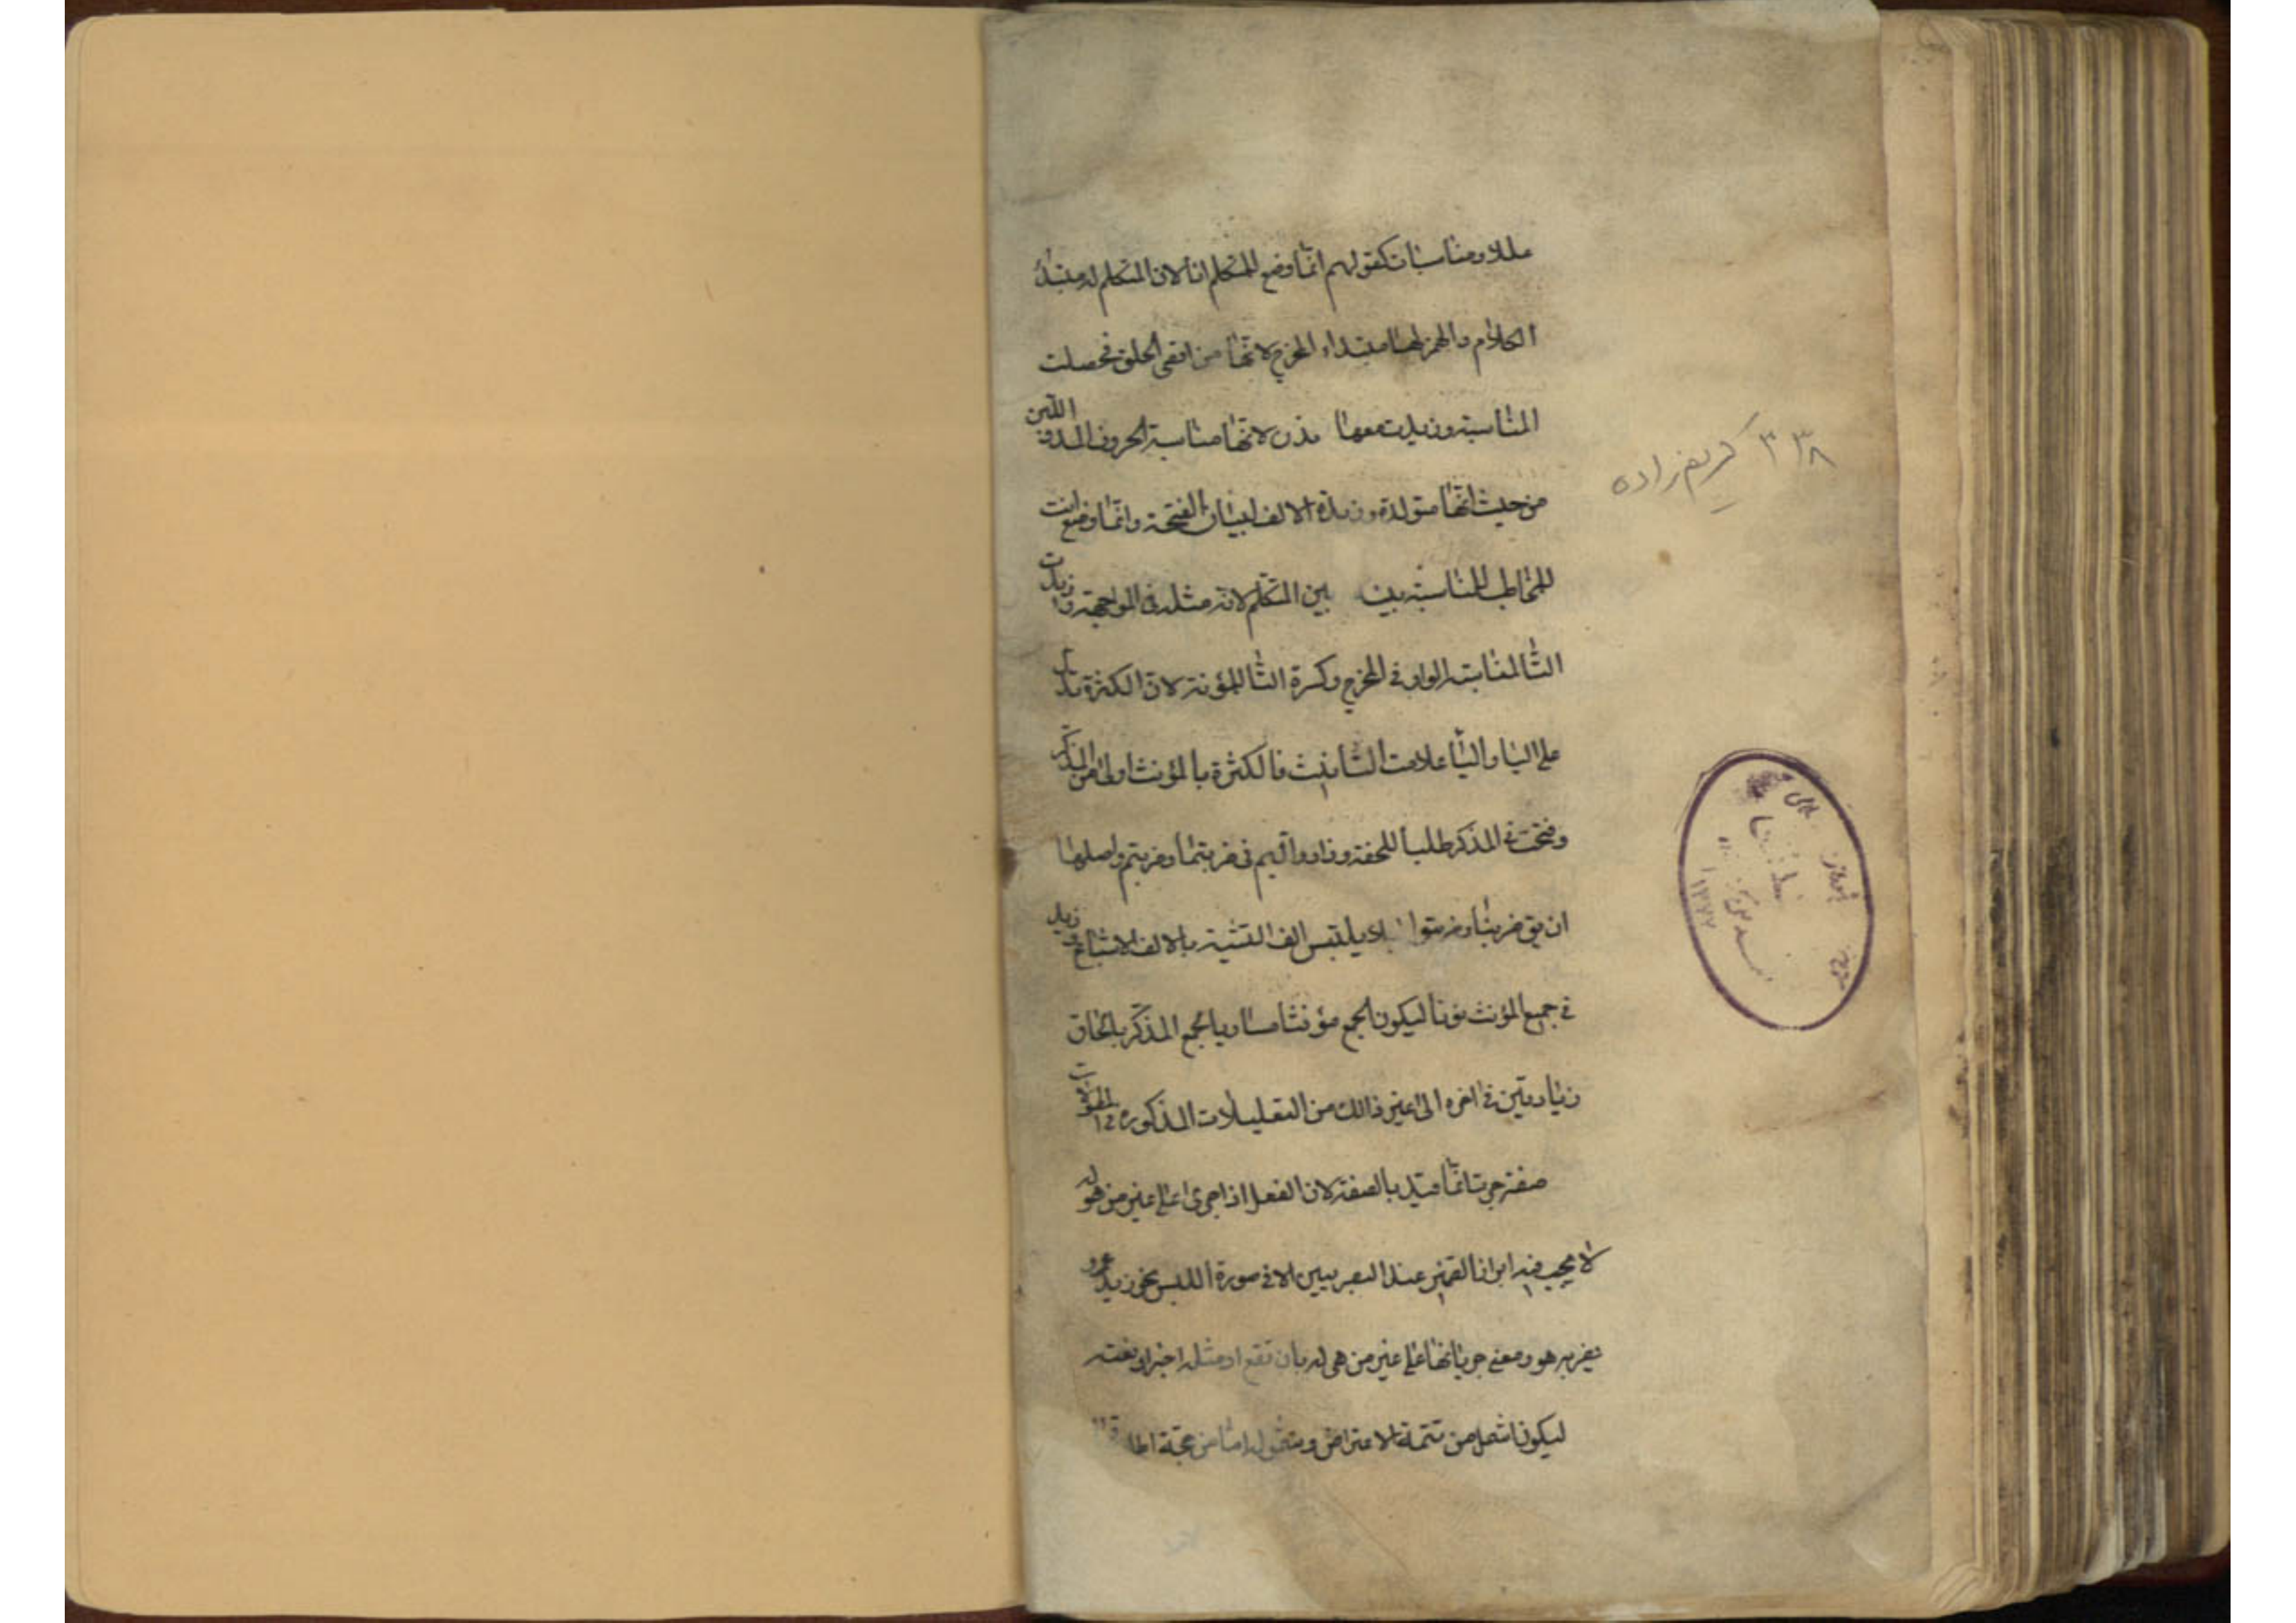 عللا ومناسبات كقولهم انما وضع للمتكلم انا لان المتكلم له مبتدأ
الكلام والهمز لها مبتداء المخرج لانها من اقصى الحلق فحصلت
المناسبة وزيدت معها لانها مناسبة الحروف المد واللين
من حيث انها متولدة وزيدة الالف لبيان الفتحة وانما وضع انت
للمخاطب للمناسبة بينه بين المتكلم لانه مثله في المواجهة وزيدت
التا لمناسبة الواو في المخرج وكسرة التا للمؤنة لان الكثرة يدل
على اليا واليا علامت التانيث فالكثرة بالمؤنث اولى من المذكر
وفتحت في المذكر طلبا للخفة وزادوا الميم في ضربتما وضربتم واصلها
ان يق ضربتا وضربتوا يلتبس الف التثنية بالالف الاشباع وزيد
في جميع المؤنث نونا ليكون الجمع مؤنثا مساويا لجمع المذكر بالحاق
زيادتين في اخره الى غير ذالك من التعليلات المذكورة في المطولات
صفة جرت انما قيد بالصفة لان الفعل اذا جرى على غير من هو له
لا يجب فيه ابراز الضمير عند البصريين الا في صورة اللبس نحو زيد عمرو
يضربه هو ومعنى جريانها على غير من هي له بان تقع اومثله اخبر او نعت
ليكونا من تتمة الاعتراض
۳۳۸ کریم زاده
۱۳۷۷